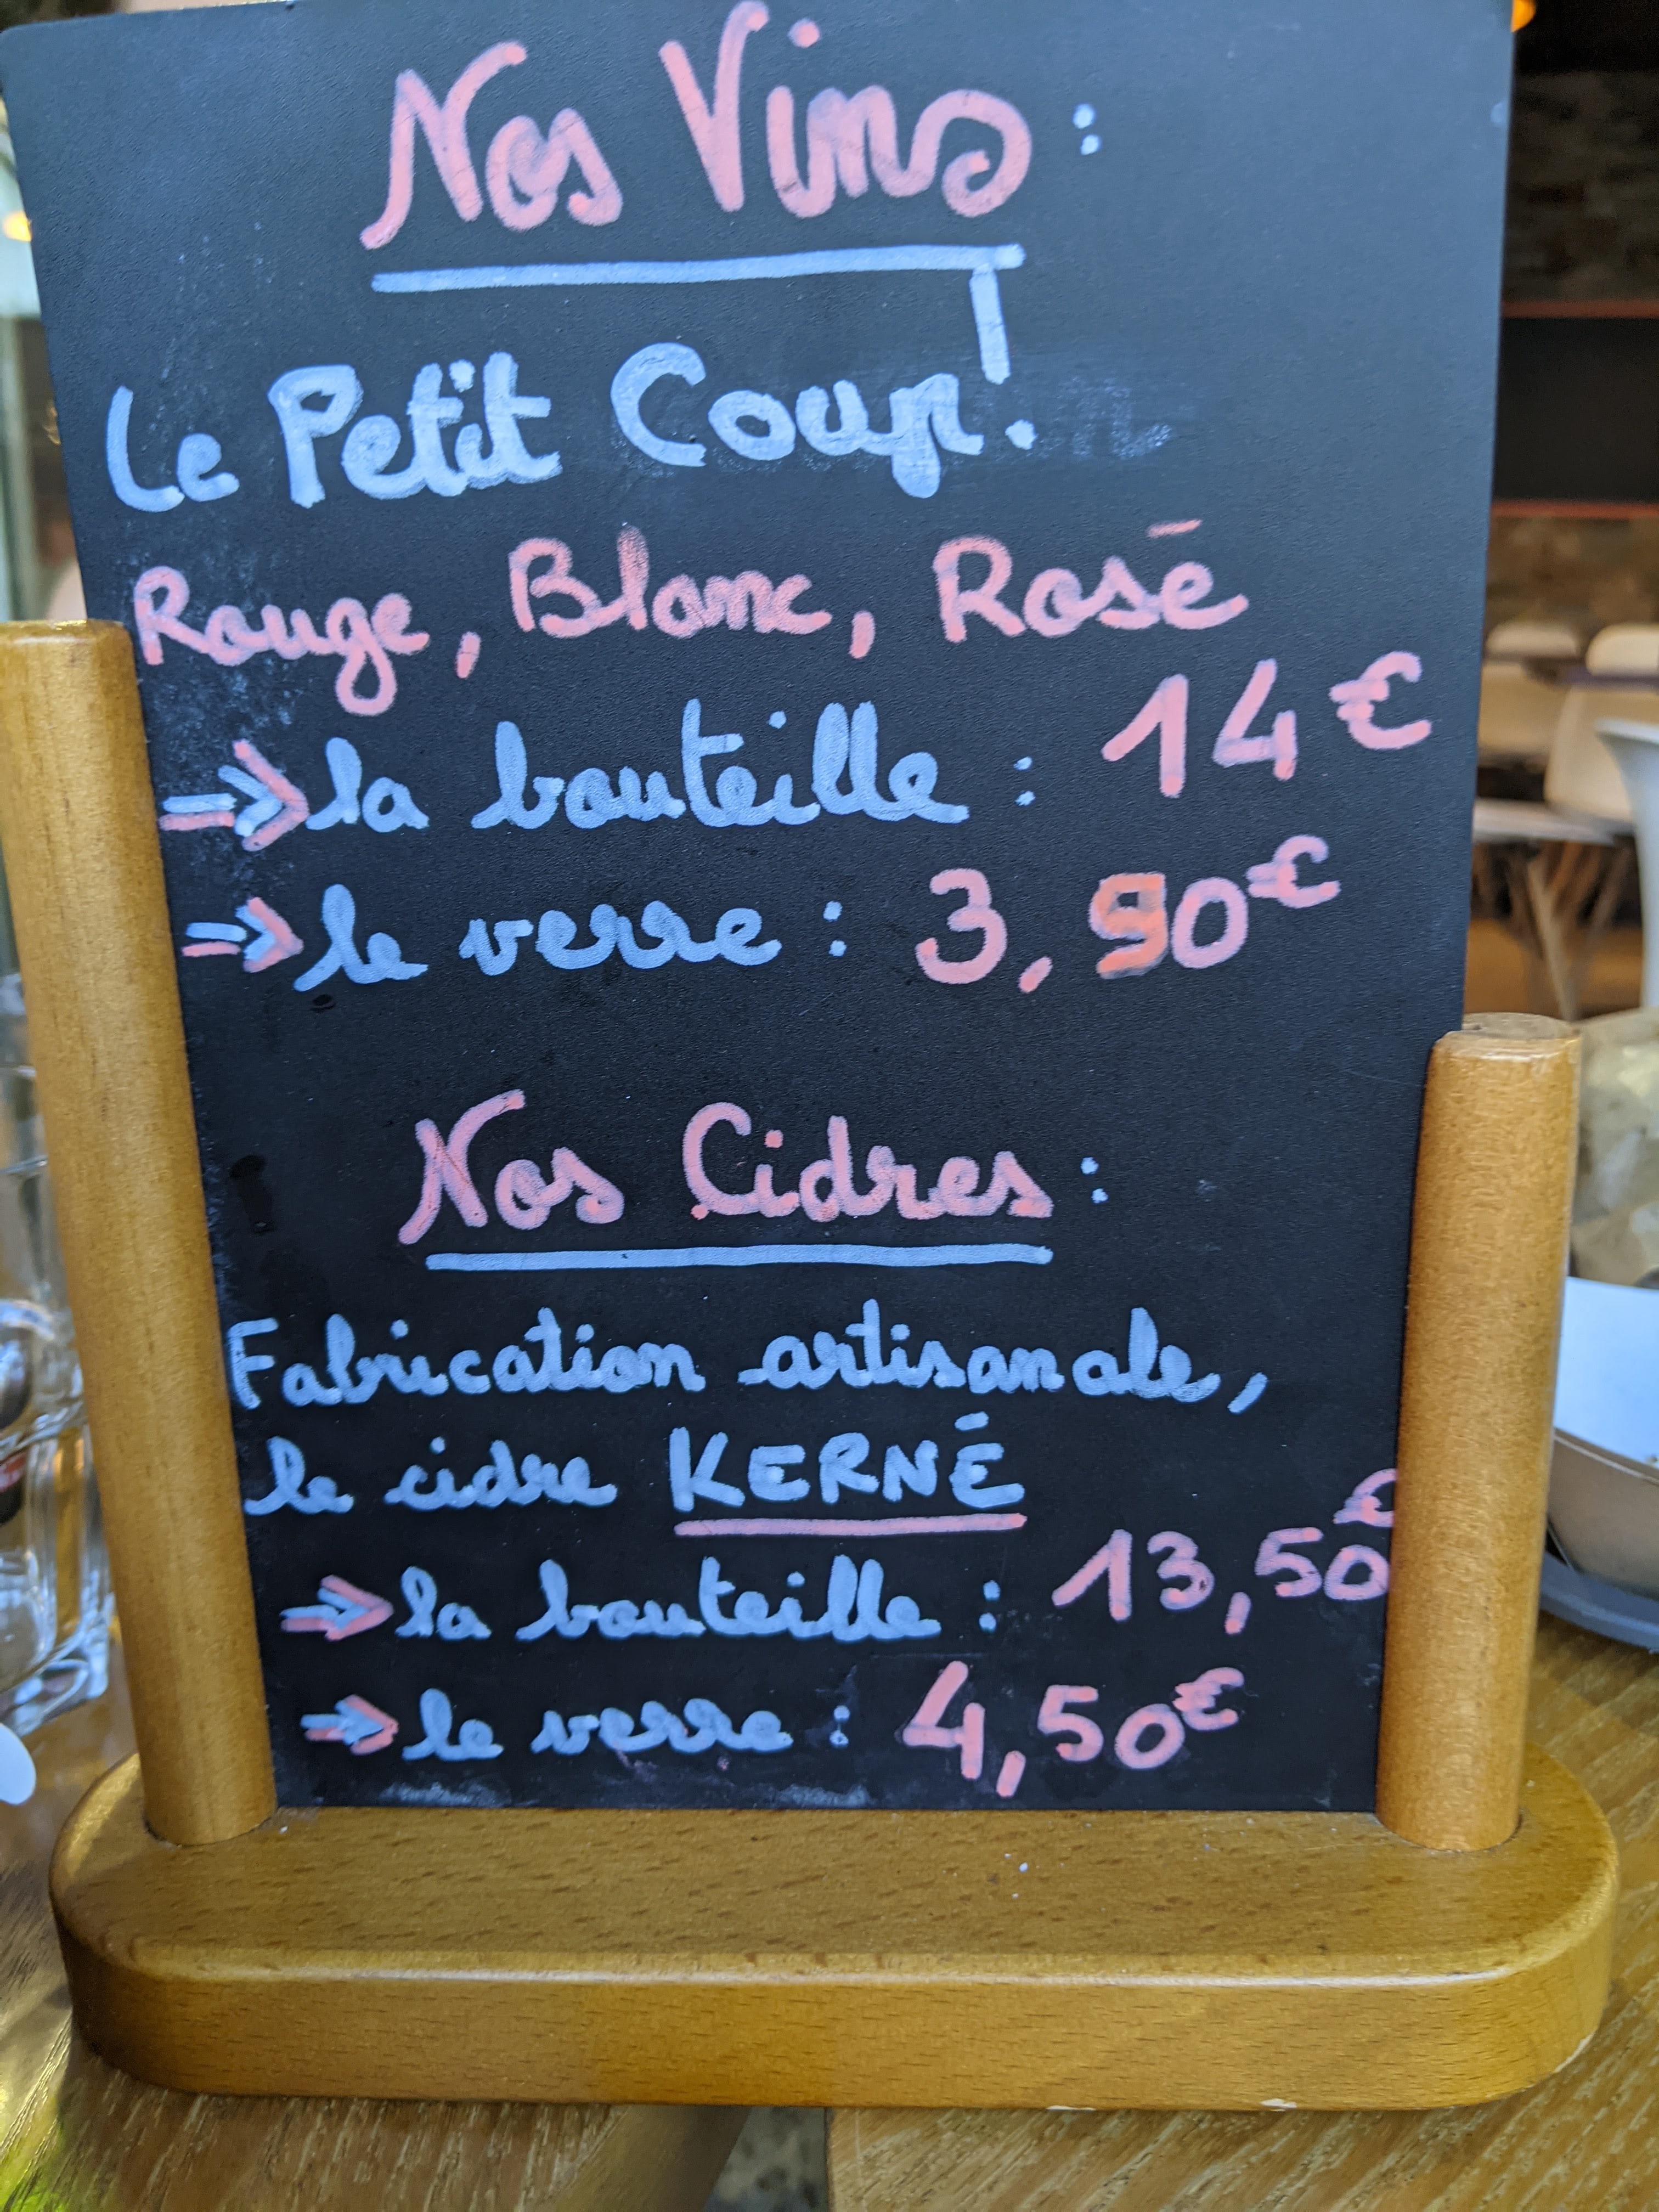 Nos Vins :
Le Petit Coup !
Rouge, Blanc, Rosé
⇒ la bouteille : 14€
⇒ le verre : 3,90€
Nos Cidres :
Fabrication artisanale,
le cidre KERNÉ
⇒ la bouteille : 13,50€
⇒ le verre : 4,50€